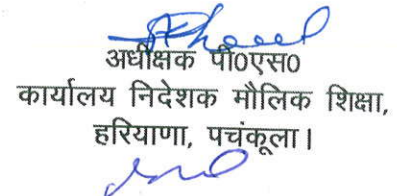 अधीक्षक पी०एस०
कार्यालय निदेशक मौलिक शिक्षा,
हरियाणा, पचंकूला।